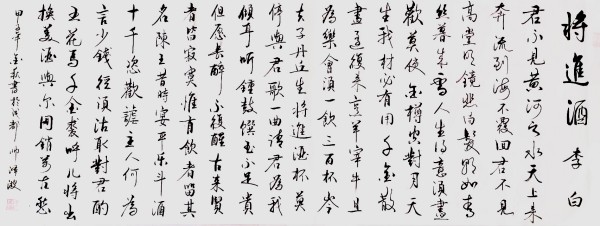 將進酒 李白
君不見黃河之水天上来
奔流到海不復回君不見
高堂明鏡悲白髮朝如青
丝暮成雪人生得意須盡
歡莫使金樽空對月天
生我材必有用千金散
盡還復来烹羊宰牛且
為樂會須一飲三百杯岑
夫子丹丘生將進酒杯莫
停與君歌一曲請君為我
傾耳聽鐘鼓饌玉不足貴
但愿長醉不復醒古来賢
者皆寂寞惟有飲者留其
名陳王昔時宴平樂斗酒
十千恣歡謔主人何為
言少錢徑須沽取對君酌
五花馬千金裘呼兒將出
換美酒與尔同銷万古愁
書於成都